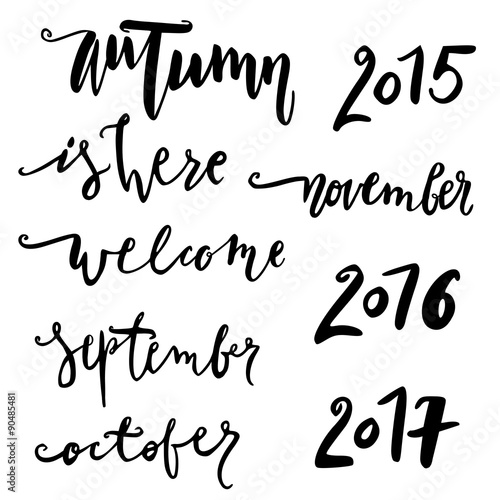 autumn
is here
welcome
september
october
2015
november
2016
2017
Adobe Stock | #90485481